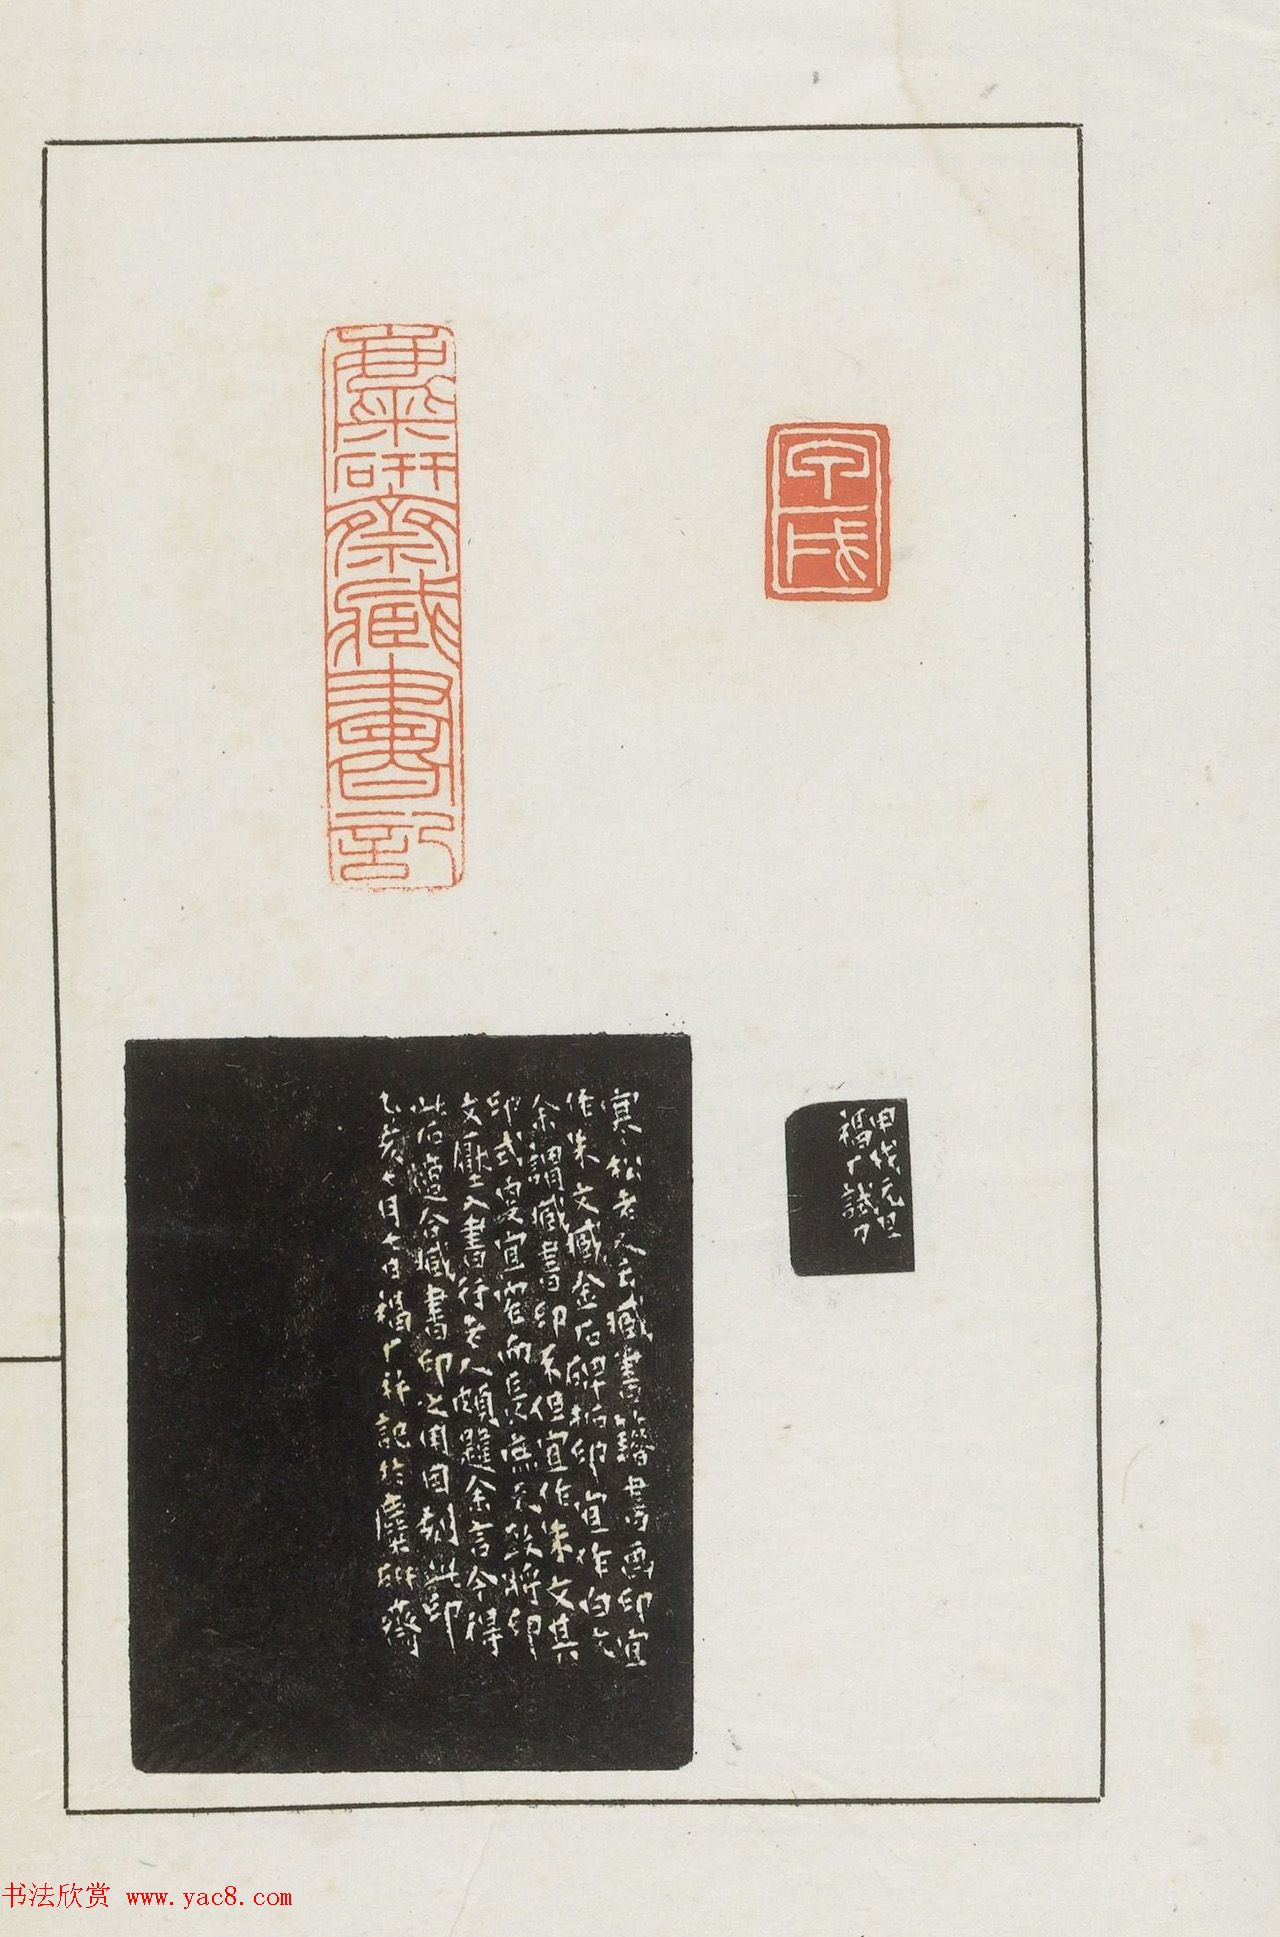 甲戌
甲戌元旦
福厂試刀
麋研齋藏書記
寒松老人云藏書籍書画印宜
作朱文藏金石碑拓印宜作白文
余謂藏書印不但宜作朱文其
印式更宜窄而長庶不致將印
文壓入書行老人頗韙余言今得
此石適合藏書印之用因刻此印
乙亥七月七日福厂并記於麋研齋
书法欣赏 www.yac8.com